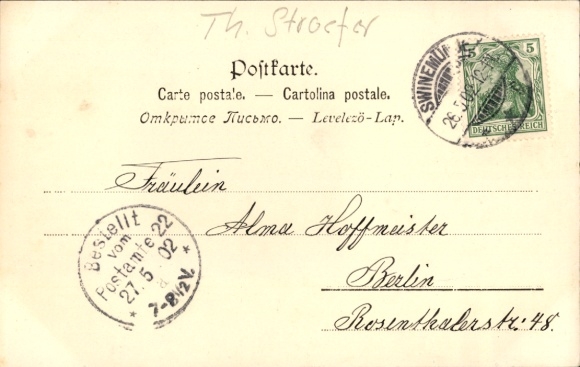 Th. Stroefer
Postkarte.
Carte postale. — Cartolina postale.
Открытое Письмо. — Levelező-Lap.
SWINEMÜNDE
26.5.02
5
DEUTSCHES REICH
Fräulein
Alma Hoffmeister
Berlin
Rosenthalerstr. 48.
Bestellt
vom
Postamte 22
27.5.02
7-8½V.